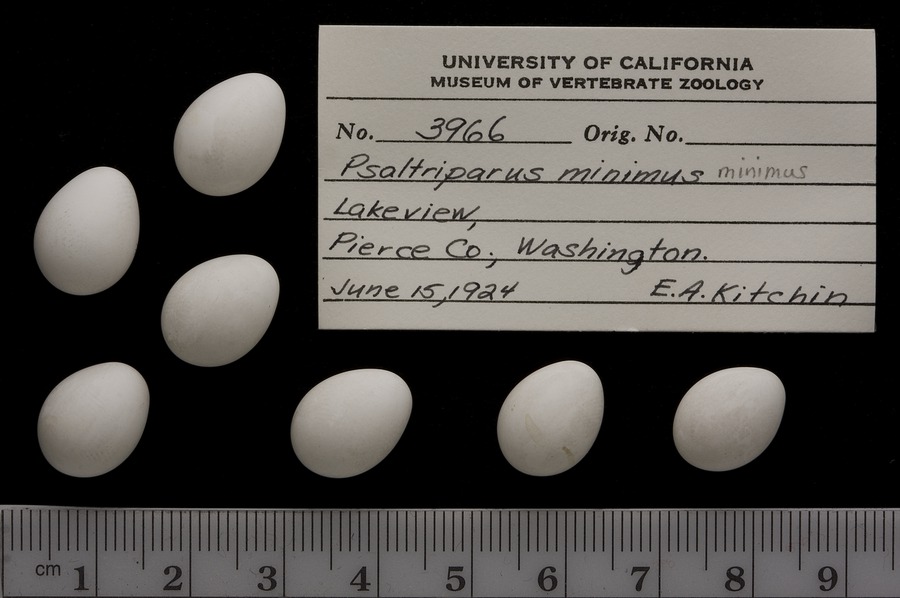 UNIVERSITY OF CALIFORNIA
MUSEUM OF VERTEBRATE ZOOLOGY
No. 3966 Orig. No.
Psaltriparus minimus minimus
Lakeview,
Pierce Co., Washington.
June 15, 1924 E.A. Kitchin
cm 1 2 3 4 5 6 7 8 9